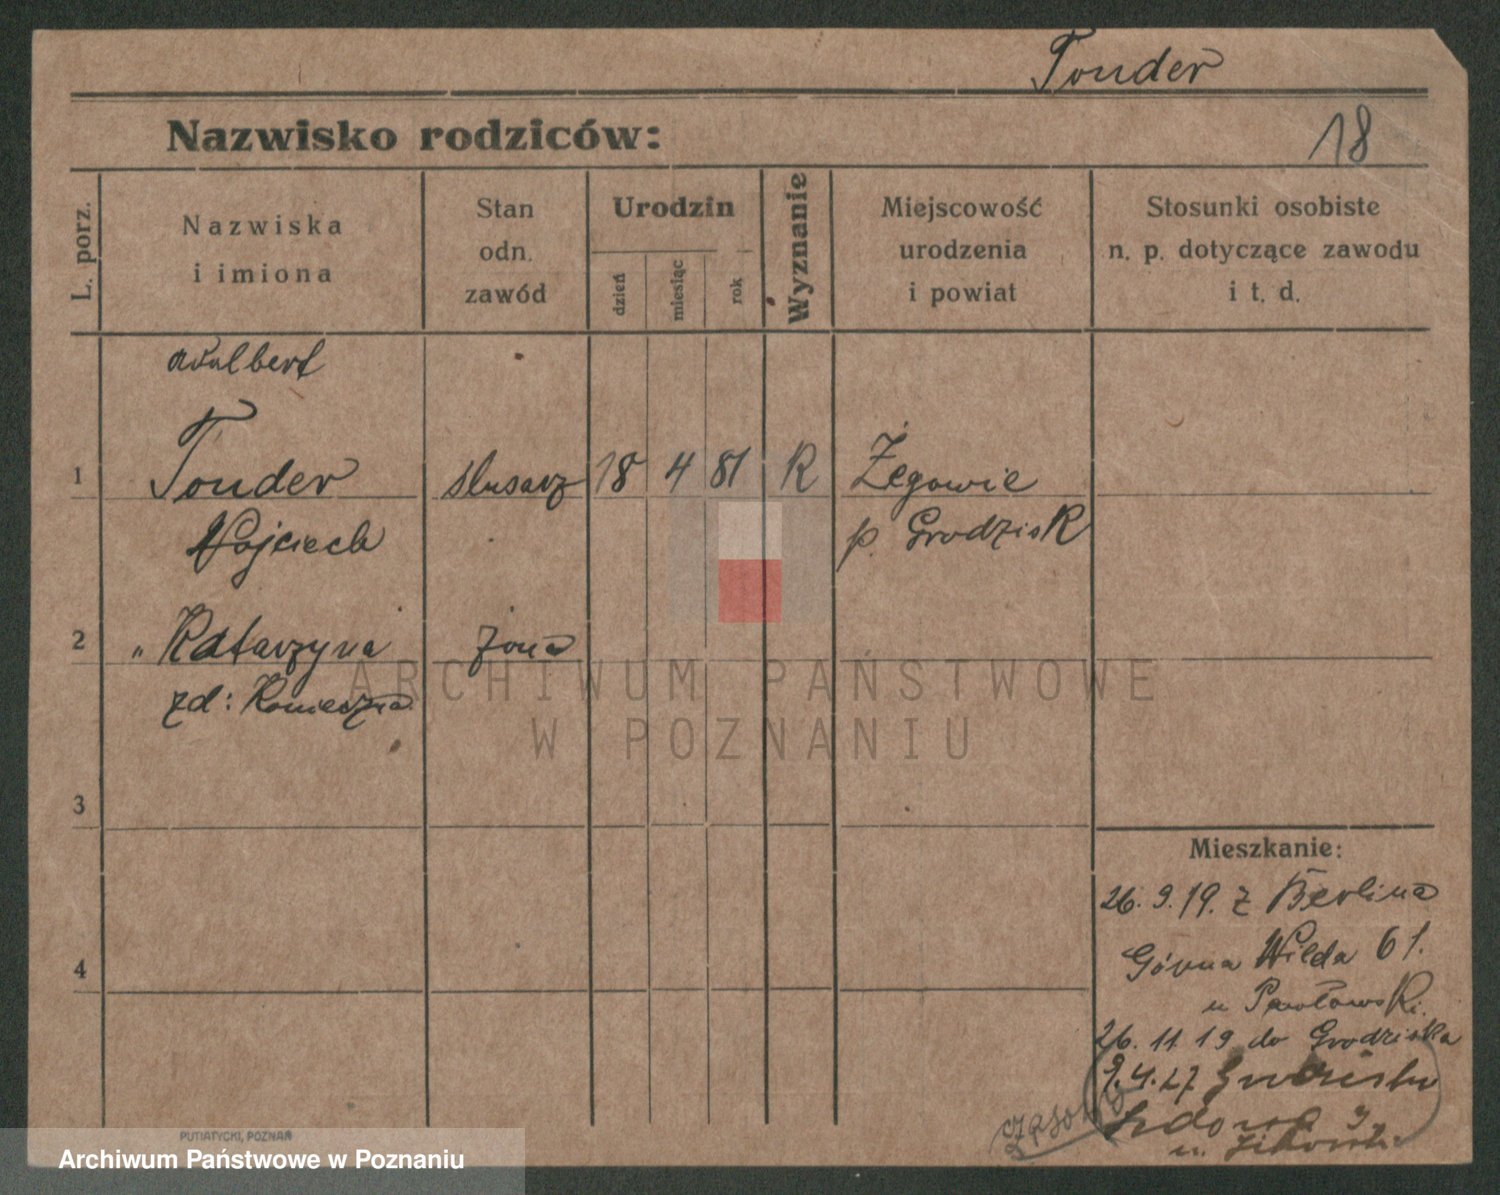 Tonder
Nazwisko rodziców:
18
L. porz.
Nazwiska
i imiona
Stan
odn.
zawód
Urodzin
dzień
miesiąc
rok
Wyznanie
Miejscowość
urodzenia
i powiat
Stosunki osobiste
n. p. dotyczące zawodu
i t. d.
adalbert
1 Tonder slusarz 18 4 81 R Żegowie
Wojciech p. Grodzisk
2 " Katarzyna żona
zd: Konieczna
ARCHIWUM PAŃSTWOWE
W POZNANIU
3
4
Mieszkanie:
26. 9. 19. z Berlina
Górna Wilda 61.
u Pawłowski.
26. 11 19 do Grodziska
9.4.27 Grodzisko
czasowo
u.
PUTIATYCKI, POZNAŃ
Archiwum Państwowe w Poznaniu